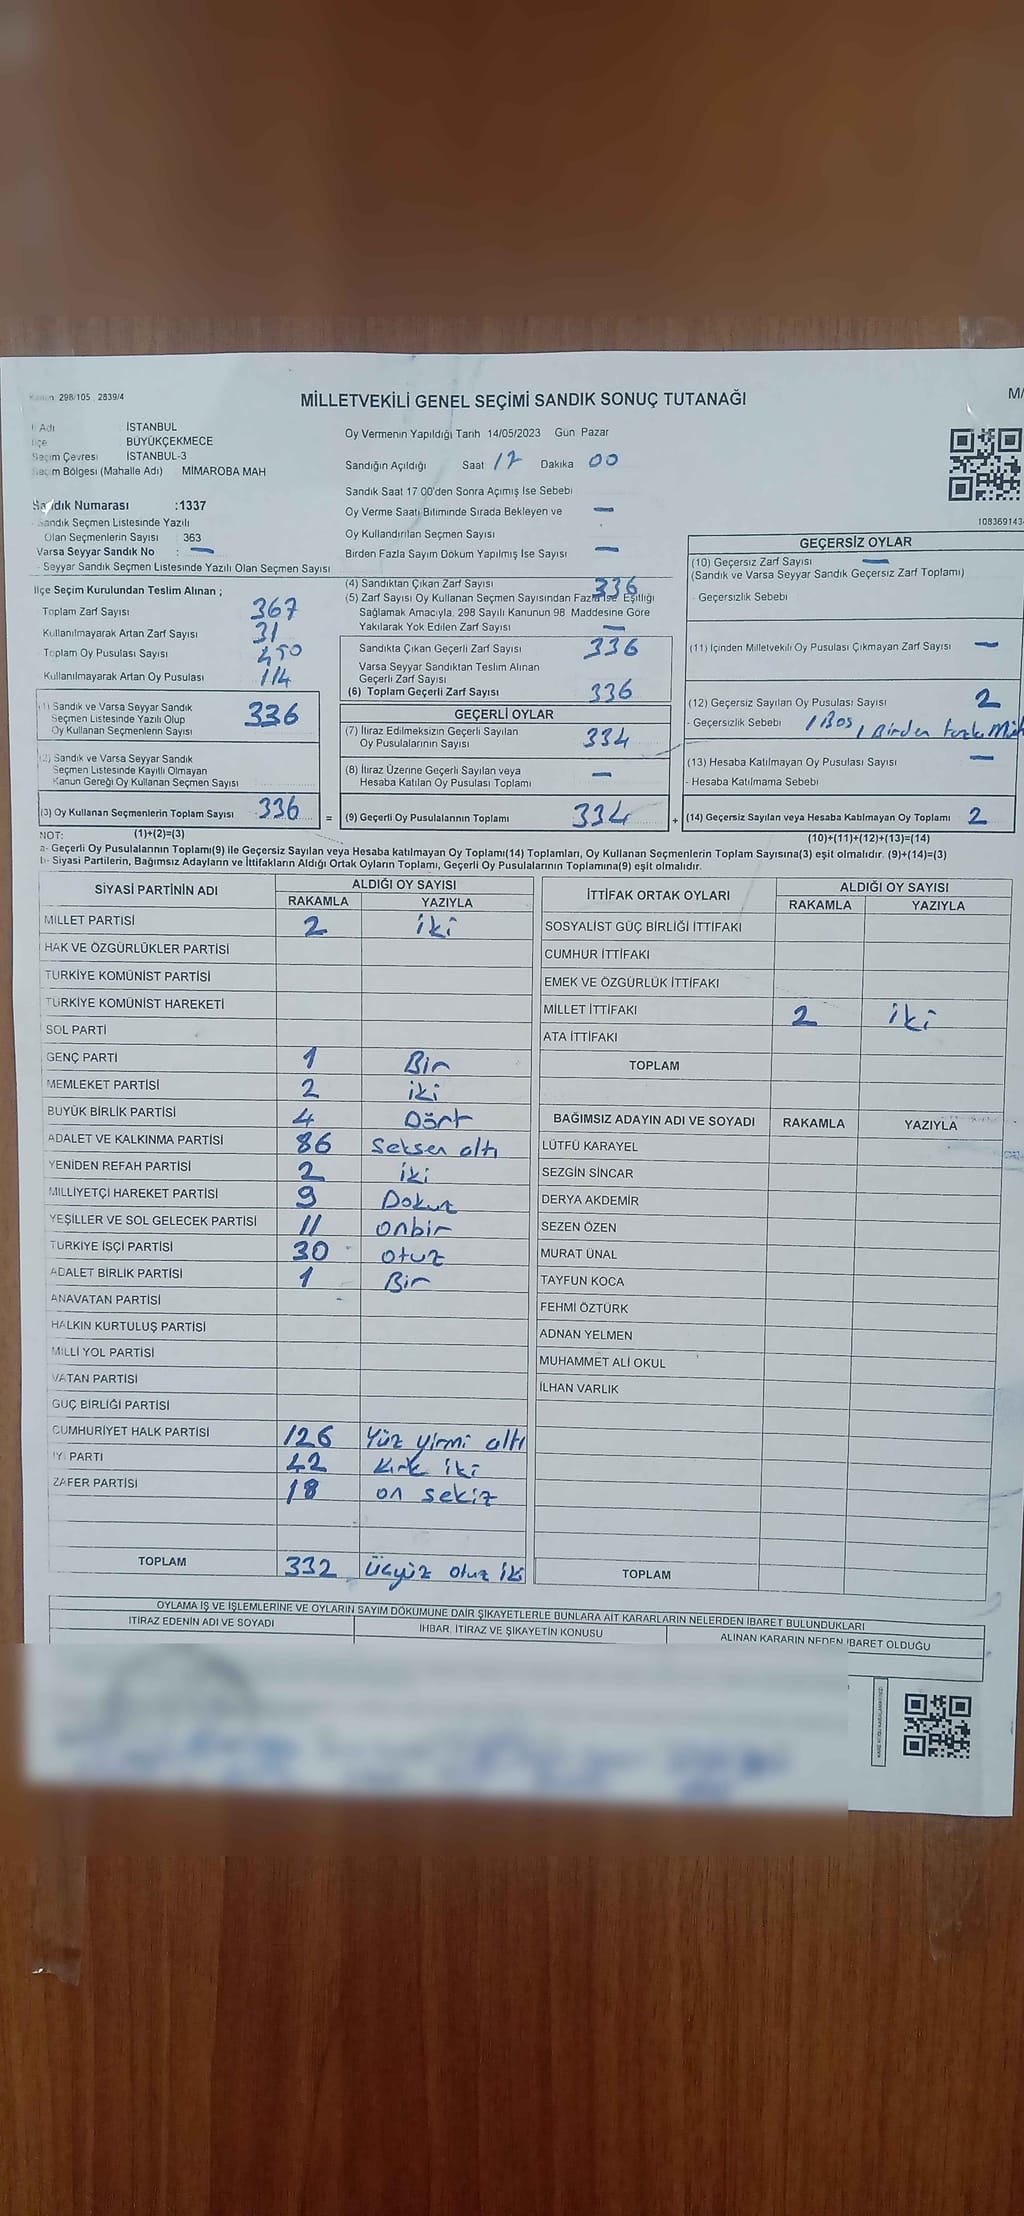 Kanun 298/105 , 2839/4
MİLLETVEKİLİ GENEL SEÇİMİ SANDIK SONUÇ TUTANAĞI
M/
İl Adı İSTANBUL
İlçe BÜYÜKÇEKMECE
Seçim Çevresi İSTANBUL-3
Seçim Bölgesi (Mahalle Adı) MİMAROBA MAH
Sandık Numarası :1337
Sandık Seçmen Listesinde Yazılı
Olan Seçmenlerin Sayısı : 363
Varsa Seyyar Sandık No : —
- Seyyar Sandık Seçmen Listesinde Yazılı Olan Seçmen Sayısı
İlçe Seçim Kurulundan Teslim Alınan ;
Toplam Zarf Sayısı 367
Kullanılmayarak Artan Zarf Sayısı 31
Toplam Oy Pusulası Sayısı 450
Kullanılmayarak Artan Oy Pusulası 114
(1) Sandık ve Varsa Seyyar Sandık
Seçmen Listesinde Yazılı Olup
Oy Kullanan Seçmenlerin Sayısı 336
(2) Sandık ve Varsa Seyyar Sandık
Seçmen Listesinde Kayıtlı Olmayan
Kanun Gereği Oy Kullanan Seçmen Sayısı
(3) Oy Kullanan Seçmenlerin Toplam Sayısı 336 =
Oy Vermenin Yapıldığı Tarih 14/05/2023 Gün Pazar
Sandığın Açıldığı Saat 17 Dakika 00
Sandık Saat 17 00'den Sonra Açımış İse Sebebi
Oy Verme Saati Bitiminde Sırada Bekleyen ve —
Oy Kullandırılan Seçmen Sayısı
Birden Fazla Sayım Döküm Yapılmış İse Sayısı —
(4) Sandıktan Çıkan Zarf Sayısı 336
(5) Zarf Sayısı Oy Kullanan Seçmen Sayısından Fazla İse Eşitliği
Sağlamak Amacıyla, 298 Sayılı Kanunun 98 Maddesine Göre
Yakılarak Yok Edilen Zarf Sayısı —
Sandıkta Çıkan Geçerli Zarf Sayısı 336
Varsa Seyyar Sandıktan Teslim Alınan
Geçerli Zarf Sayısı
(6) Toplam Geçerli Zarf Sayısı 336
GEÇERLİ OYLAR
(7) İtiraz Edilmeksizin Geçerli Sayılan
Oy Pusulalarının Sayısı 334
(8) İtiraz Üzerine Geçerli Sayılan veya
Hesaba Katılan Oy Pusulası Toplamı —
(9) Geçerli Oy Pusulalarının Toplamı 334 +
108369143
GEÇERSİZ OYLAR
(10) Geçersiz Zarf Sayısı —
(Sandık ve Varsa Seyyar Sandık Geçersiz Zarf Toplamı)
- Geçersizlik Sebebi
(11) İçinden Milletvekili Oy Pusulası Çıkmayan Zarf Sayısı —
(12) Geçersiz Sayılan Oy Pusulası Sayısı 2
- Geçersizlik Sebebi 1 Boş, 1 Birden fazla
(13) Hesaba Katılmayan Oy Pusulası Sayısı —
- Hesaba Katılmama Sebebi
(14) Geçersiz Sayılan veya Hesaba Katılmayan Oy Toplamı 2
NOT: (1)+(2)=(3) (10)+(11)+(12)+(13)=(14)
a- Geçerli Oy Pusulalarının Toplamı(9) ile Geçersiz Sayılan veya Hesaba katılmayan Oy Toplamı(14) Toplamları, Oy Kullanan Seçmenlerin Toplam Sayısına(3) eşit olmalıdır. (9)+(14)=(3)
b- Siyasi Partilerin, Bağımsız Adayların ve İttifakların Aldığı Ortak Oyların Toplamı, Geçerli Oy Pusulalarının Toplamına(9) eşit olmalıdır.
SİYASİ PARTİNİN ADI ALDIĞI OY SAYISI
RAKAMLA YAZIYLA
MİLLET PARTİSİ 2 iki
HAK VE ÖZGÜRLÜKLER PARTİSİ
TÜRKİYE KOMÜNİST PARTİSİ
TÜRKİYE KOMÜNİST HAREKETİ
SOL PARTİ
GENÇ PARTİ 1 Bir
MEMLEKET PARTİSİ 2 iki
BÜYÜK BİRLİK PARTİSİ 4 Dört
ADALET VE KALKINMA PARTİSİ 86 Seksen altı
YENİDEN REFAH PARTİSİ 2 iki
MİLLİYETÇİ HAREKET PARTİSİ 9 Dokuz
YEŞİLLER VE SOL GELECEK PARTİSİ 11 onbir
TÜRKİYE İŞÇİ PARTİSİ 30 otuz
ADALET BİRLİK PARTİSİ 1 Bir
ANAVATAN PARTİSİ
HALKIN KURTULUŞ PARTİSİ
MİLLİ YOL PARTİSİ
VATAN PARTİSİ
GÜÇ BİRLİĞİ PARTİSİ
CUMHURİYET HALK PARTİSİ 126 Yüz yirmi altı
İYİ PARTİ 42 kırk iki
ZAFER PARTİSİ 18 on sekiz
TOPLAM 332 Üçyüz otuz iki
İTTİFAK ORTAK OYLARI ALDIĞI OY SAYISI
RAKAMLA YAZIYLA
SOSYALİST GÜÇ BİRLİĞİ İTTİFAKI
CUMHUR İTTİFAKI
EMEK VE ÖZGÜRLÜK İTTİFAKI
MİLLET İTTİFAKI 2 iki
ATA İTTİFAKI
TOPLAM
BAĞIMSIZ ADAYIN ADI VE SOYADI RAKAMLA YAZIYLA
LÜTFÜ KARAYEL
SEZGİN SİNCAR
DERYA AKDEMİR
SEZEN ÖZEN
MURAT ÜNAL
TAYFUN KOCA
FEHMİ ÖZTÜRK
ADNAN YELMEN
MUHAMMET ALİ OKUL
İLHAN VARLIK
TOPLAM
OYLAMA İŞ VE İŞLEMLERİNE VE OYLARIN SAYIM DÖKÜMÜNE DAİR ŞİKAYETLERLE BUNLARA AİT KARARLARIN NELERDEN İBARET BULUNDUKLARI
İTİRAZ EDENİN ADI VE SOYADI İHBAR, İTİRAZ VE ŞİKAYETİN KONUSU ALINAN KARARIN NEDEN İBARET OLDUĞU